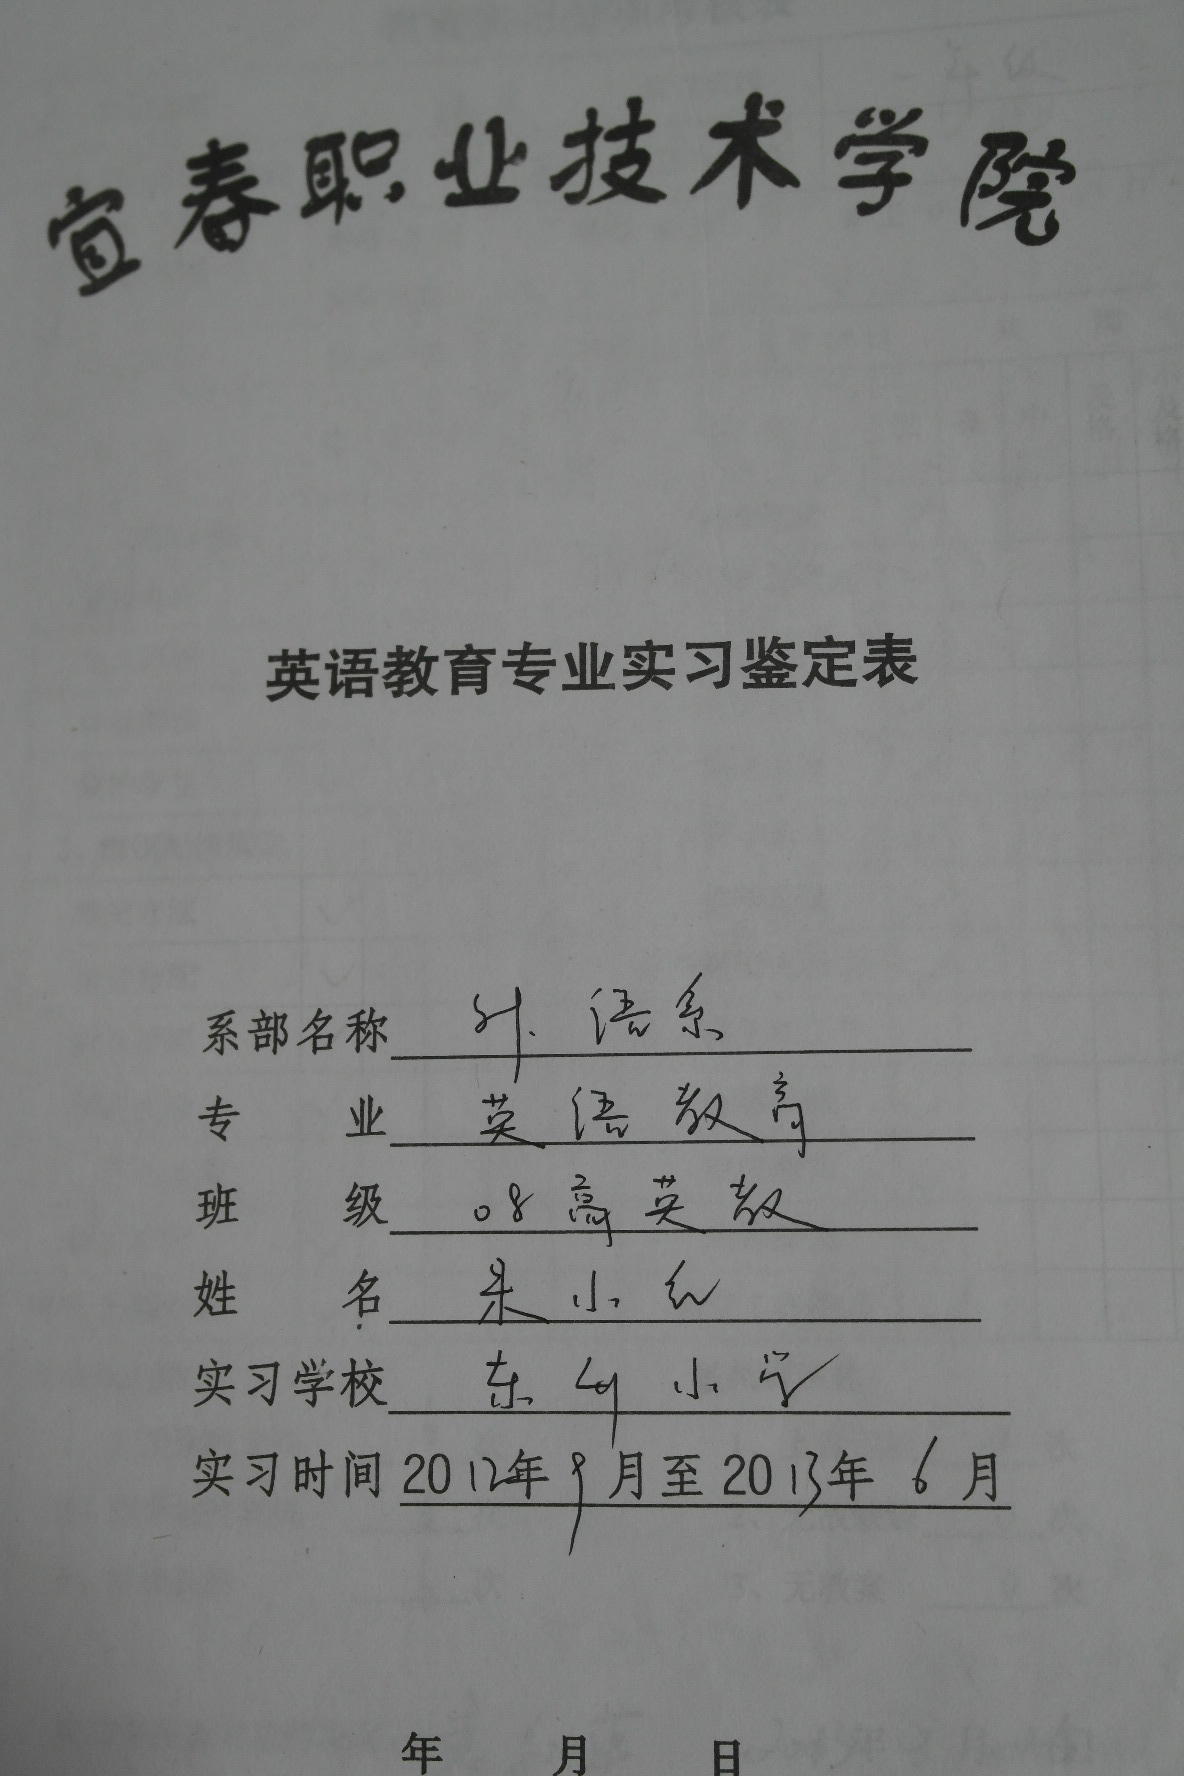 宜春职业技术学院
英语教育专业实习鉴定表
系部名称 外语系
专 业 英语教育
班 级 08高英教
姓 名 朱小红
实习学校 东 小学
实习时间 2012年9月至2013年6月
年 月 日